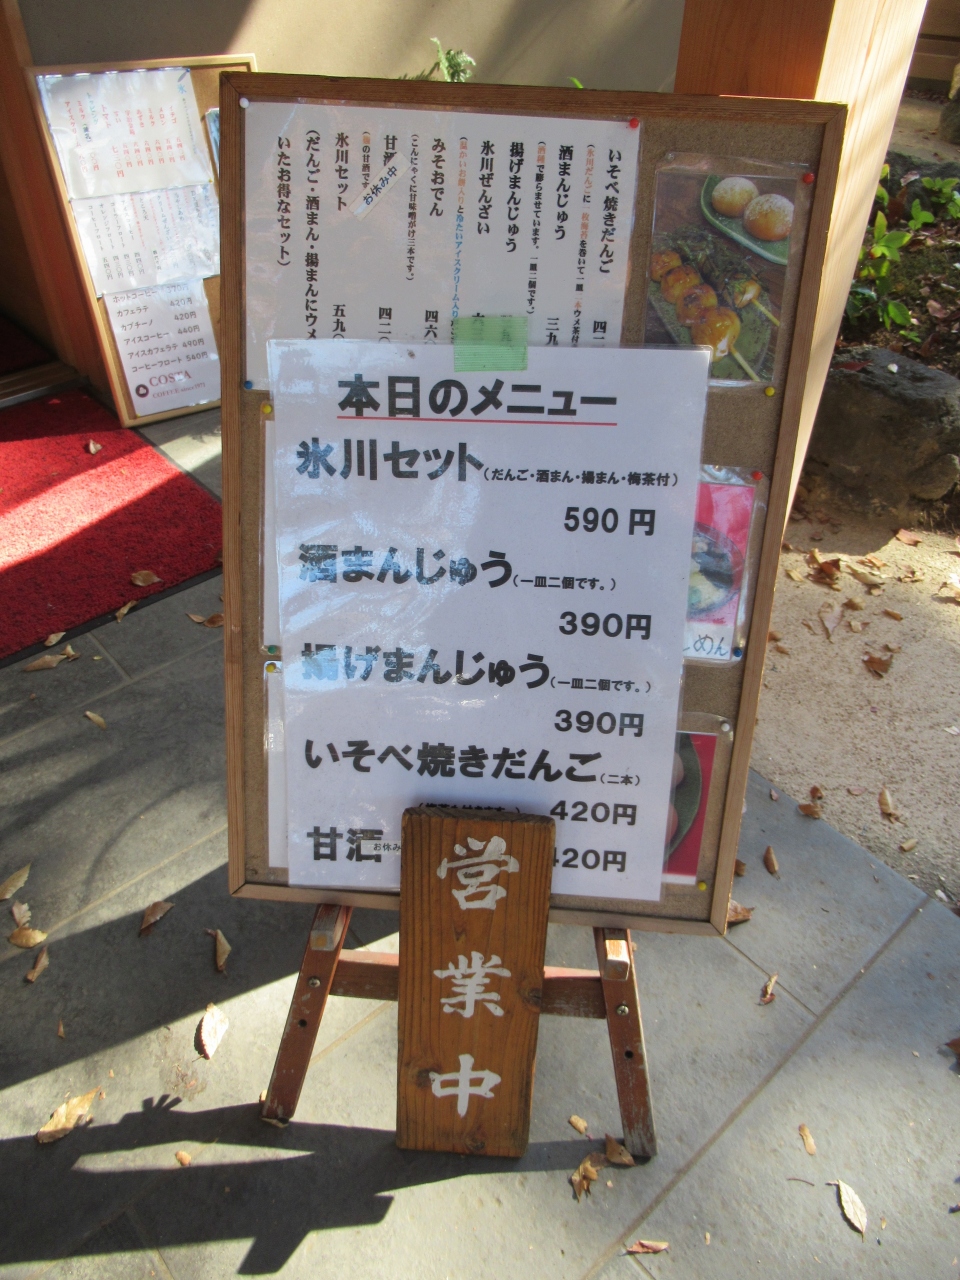 いそべ焼きだんご
酒まんじゅう 三九
揚げまんじゅう
氷川ぜんざい
(温かいお餅入りと冷たいアイスクリーム入り
みそおでん 四六
(こんにゃくに甘味噌がけ三本です。)
甘酒 お休み中 四二〇
氷川セット 五九〇
(だんご・酒まん・揚まんにウメ
いたお得なセット)
本日のメニュー
氷川セット(だんご・酒まん・揚まん・梅茶付)
590円
酒まんじゅう(一皿二個です。)
390円
揚げまんじゅう(一皿二個です。)
390円
いそべ焼きだんご(二本)
420円
甘酒 お休み
420円
営業中
ホットコーヒー
カフェラテ 420円
カプチーノ 420円
アイスコーヒー 440円
アイスカフェラテ 490円
コーヒーフロート 540円
COSTA
めん